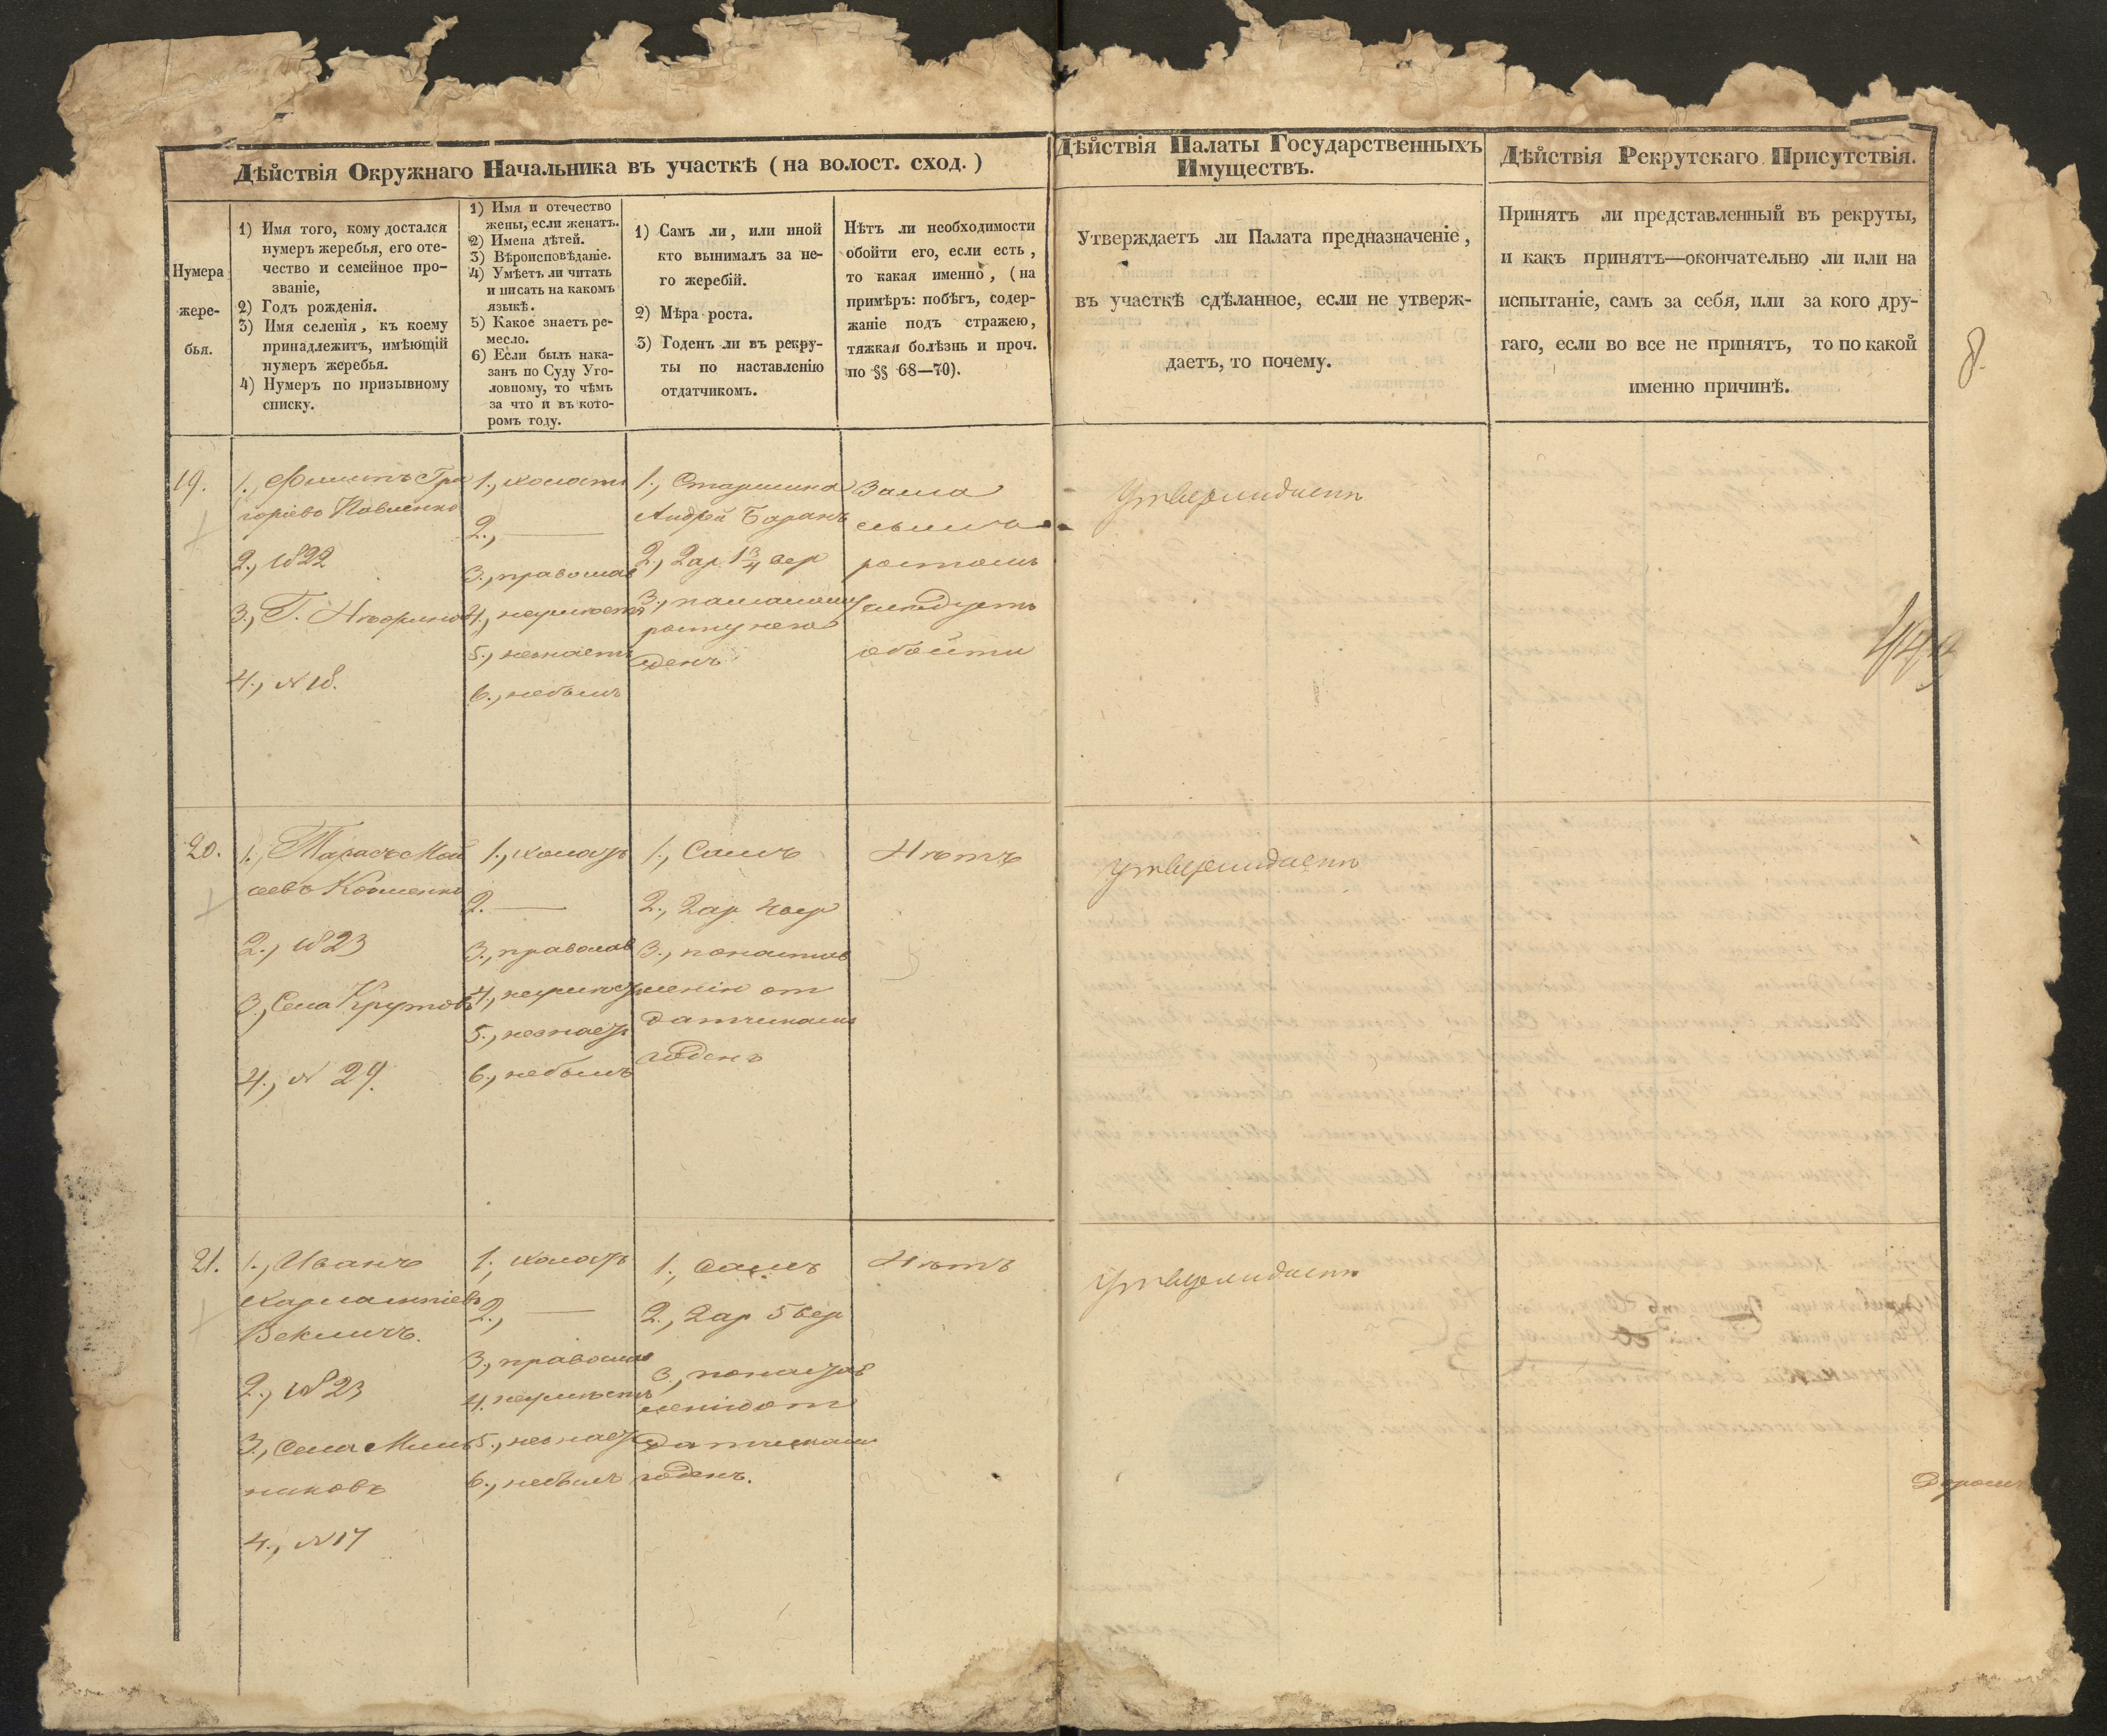 Дѣйствія Окружнаго Начальника въ участкѣ (на волост. сход.)
Нумера
жере-
бья.
1) Имя того, кому достался
нумеръ жеребья, его оте-
чество и семейное про-
званіе,
2) Годъ рожденія.
3) Имя селенія, къ коему
принадлежитъ, имѣющій
нумеръ жеребья.
4) Нумеръ по призывному
списку.
1) Имя и отечество
жены, если женатъ.
2) Имена дѣтей.
3) Вѣроисповѣданіе.
4) Умѣетъ ли читать
и писать на какомъ
языкѣ.
5) Какое знаетъ ре-
месло.
6) Если былъ нака-
занъ по Суду Уго-
ловному, то чѣмъ
за что и въ кото-
ромъ году.
1) Самъ ли, или иной
кто вынималъ за не-
го жеребій.
2) Мѣра роста.
3) Годенъ ли въ рекру-
ты по наставленію
отдатчикомъ.
Нѣтъ ли необходимости
обойти его, если есть,
то какая именно, (на
примѣръ: побѣгъ, содер-
жаніе подъ стражею,
тяжкая болѣзнь и проч.
по §§ 68—70).
Дѣйствія Палаты Государственныхъ
Имуществъ.
Утверждаетъ ли Палата предназначеніе,
въ участкѣ сдѣланное, если не утверж-
даетъ, то почему.
Дѣйствія Рекрутскаго Присутствія.
Принятъ ли представленный въ рекруты,
и какъ принятъ—окончательно ли или на
испытаніе, самъ за себя, или за кого дру-
гаго, если во все не принятъ, то по какой
именно причинѣ.
8.
19.
1., Филипъ Гри
горіевъ Павленко
2., 1822
3., Г.
4., N 18.
1., холостъ
2., —
3., православ
4., неумѣетъ
5., незнаетъ
6., небылъ
1., Старшина
Андрей Баранъ
2., 2 ар 1 3/4 вер
3., помалому
росту него
денъ
Замалымъ
ростомъ
слѣдуетъ
обойти
Утверждаетъ
20.
1., Тарасъ Мой
сеевъ
2., 1823
3., Села Крутовъ
4., N 29.
1., холостъ
2. —
3., православ
4., неумѣетъ
5., незнаетъ
6., небылъ
1., Самъ
2., 2 ар 4 вер
3., понастав
ленію от
датчикамъ
годенъ
Нѣтъ
Утверждаетъ
21.
1., Иванъ
Харлампіевъ
Векличъ.
2., 1823
3., Села Миль
никовъ
4., N 17
1., холостъ
2., —
3., православ
4. неумѣетъ
5., незнаетъ
6., небылъ
1., Самъ
2., 2 ар 5 вер
3., понастав
ленію от
датчикамъ
годенъ.
Нѣтъ
Утверждаетъ